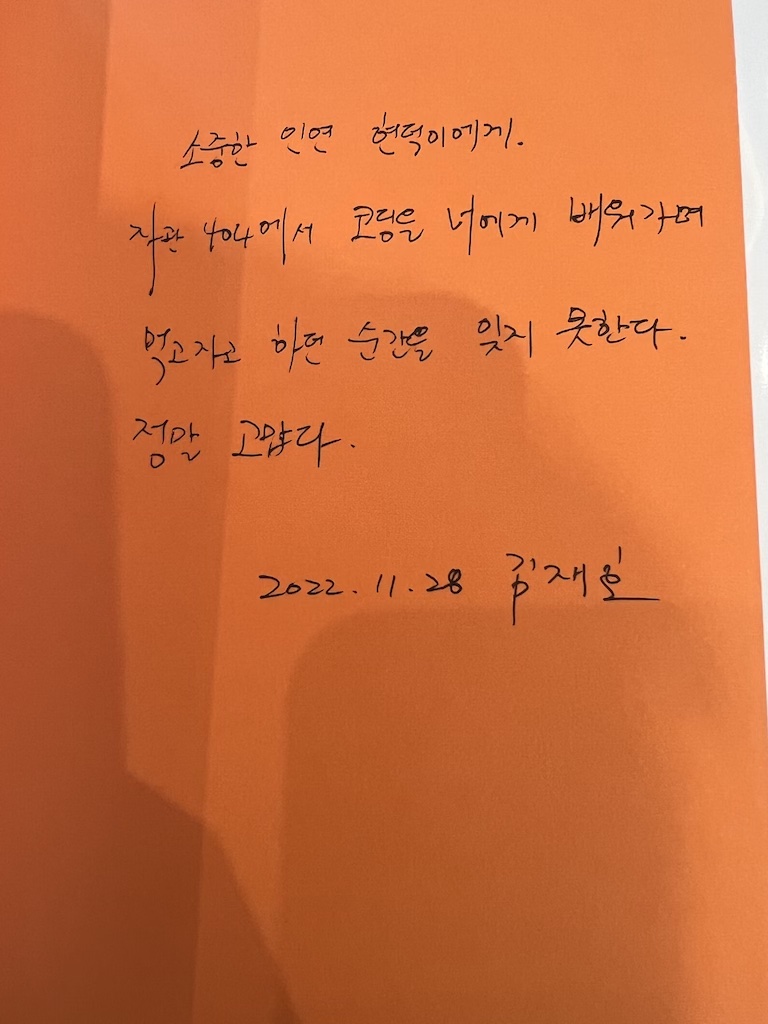 소중한 인연 현덕이에게.
자관 404에서 코딩을 너에게 배워가며
먹고자고 하던 순간을 잊지 못한다.
정말 고맙다.
2022.11.28 김재호